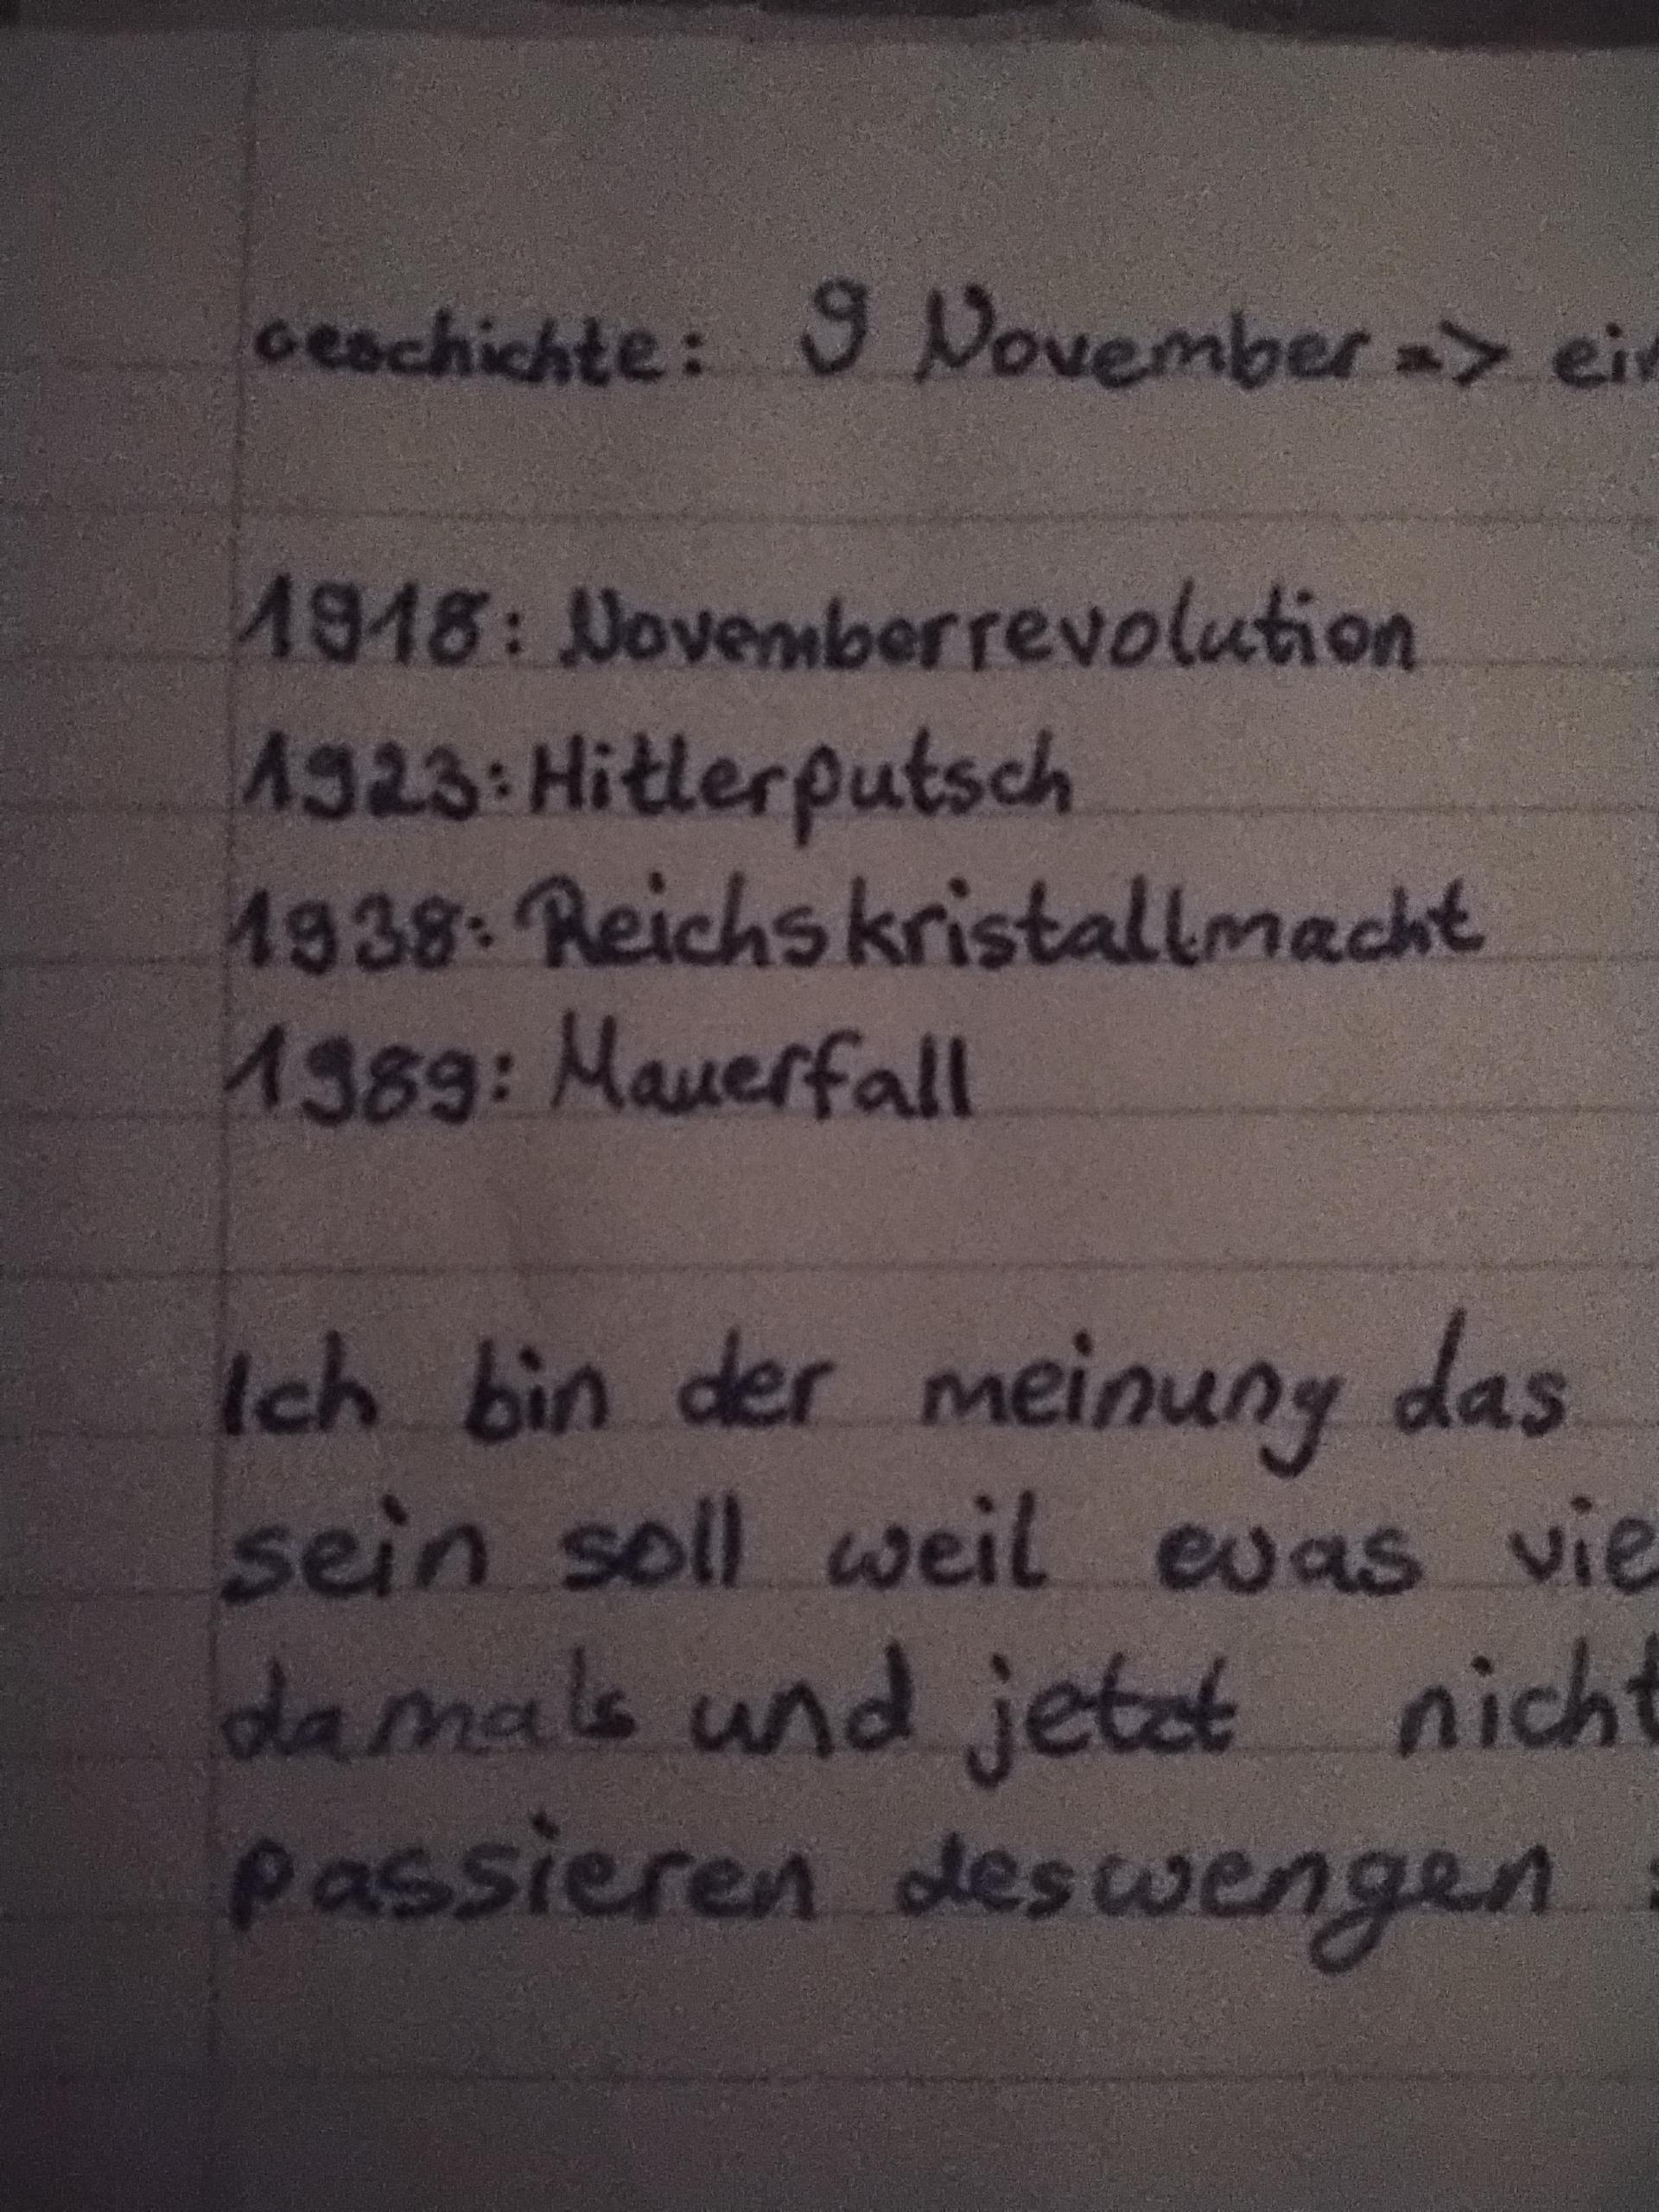 Geschichte: 9 November => ein
1918: Novemberrevolution
1923: Hitlerputsch
1938: Reichskristallmacht
1989: Mauerfall
Ich bin der meinung das
sein soll weil ewas vie
damals und jetzt nicht
passieren deswengen